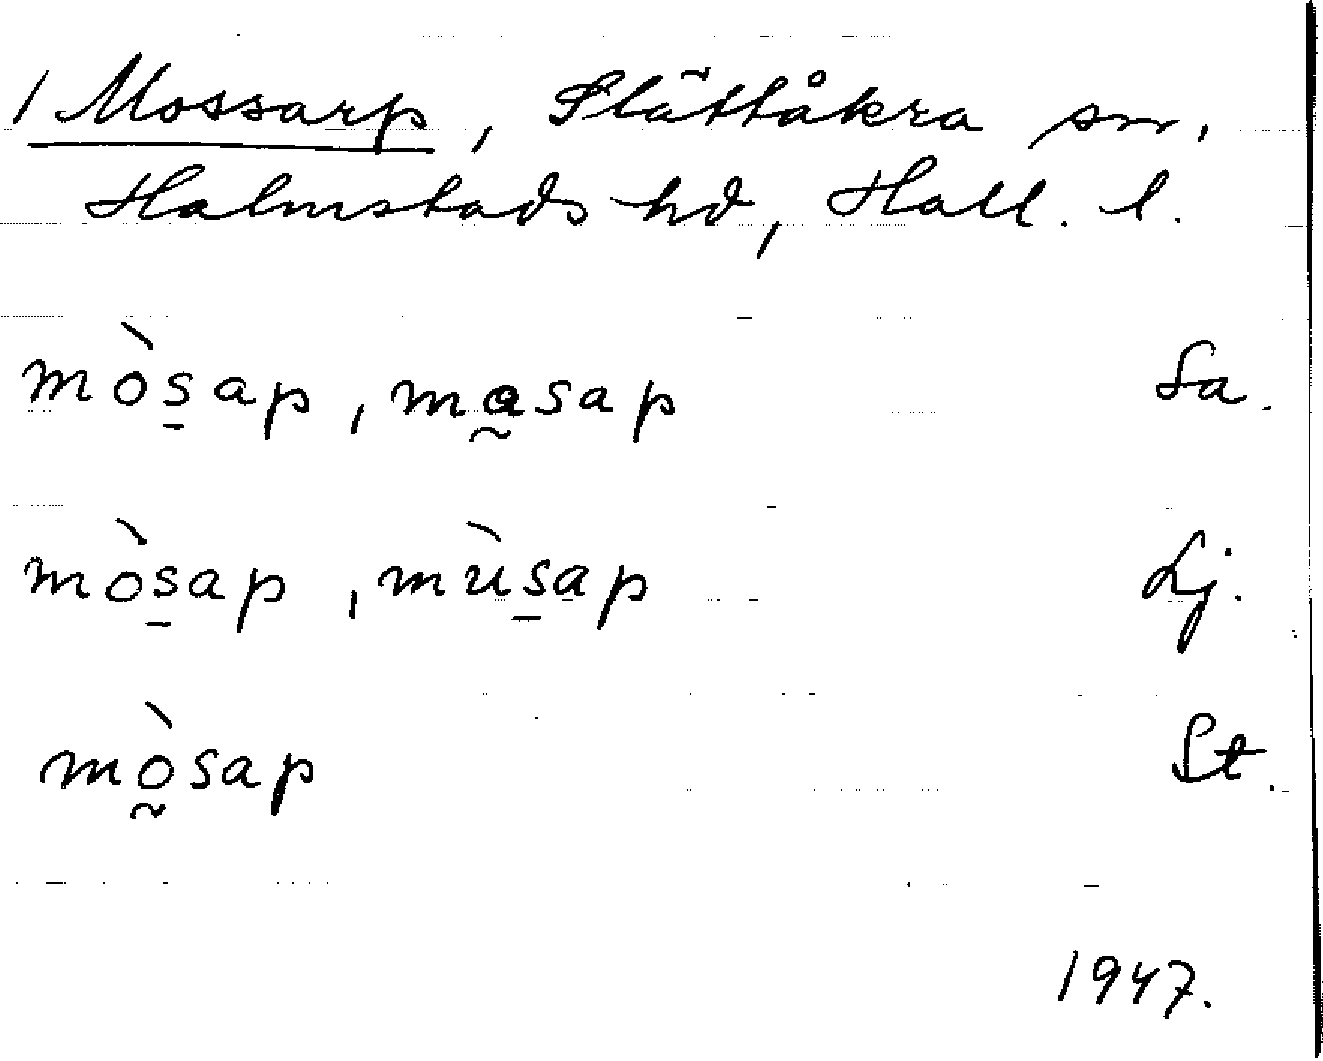 / Mossarp, Slättåkra sn,
Halmstads hd, Hall. l.
mò̀s̠ap, ma̰sap Sa.
mò̀s̠ap, mùs̠ap Lj.
mò̰sap St.
1947.